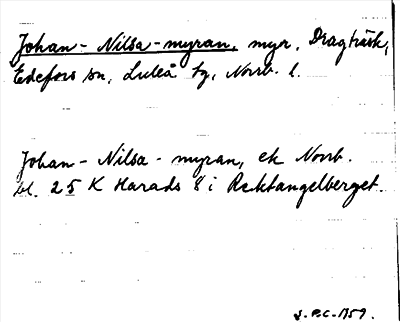 Johan-Nilsa-myran, myr, Dragträsk,
Edefors sn, Luleå tg, Norrb. l.
Johan-Nilsa-myran, ek Norrb.
bl. 25 K Harads 8 i Rektangelberget.
S.P.C. 1959.